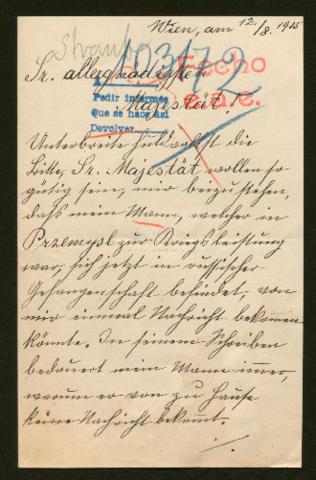 Wien, am 12./8. 1915
Straub
103172
Fecho
e.a.e.
Sr. allergnädigsten
Majestät!
Pedir informes
Que se haga así
Devolver
Unterbreite huldvollst die
Bitte, Sr. Majestät wollen so
gütig sein, mir beizustehen,
dass mein Mann, welcher in
Przemysl zur Kriegsleistung
war, sich jetzt in russischer
Gefangenschaft befindet, von
mir einmal Nachricht bekommen
könnte. In seinem Schreiben
bedauert mein Mann immer,
warum er von zu Hause
keine Nachricht bekommt.